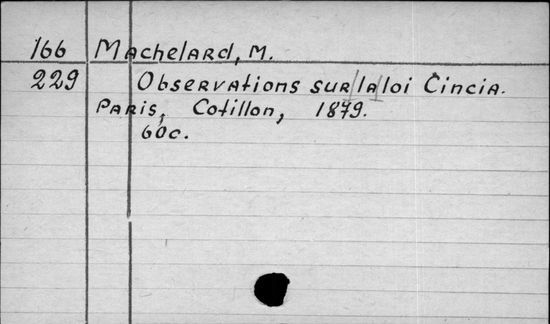 166 Machelard, M.
229 Observations sur la loi Cincia.
Paris, Cotillon, 1879.
60c.